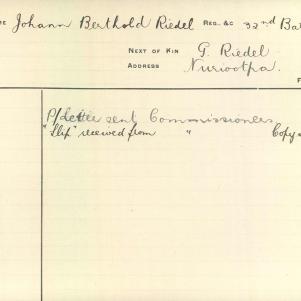 ME Johann Berthold Riedel REG. &C 32nd Bat
NEXT OF KIN G. Riedel
ADDRESS Nuriootpa.
F
P/Letter sent Commissioners
"Slip" received from " Copy